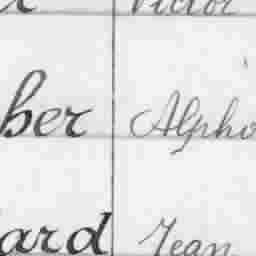 Victor
ber Alpho
ard Jean